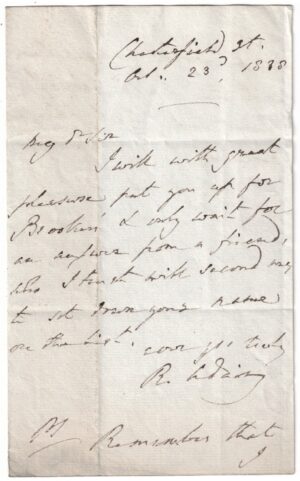 Chesterfield St.
Oct. 23d, 1838
My Dr Sir
I will with great
pleasure put you up for
Brookes' & only wait for
an answer from a friend,
who I trust will second me,
to set down your name
on the List.
ever yrs truly
R.
PS Remember that
I